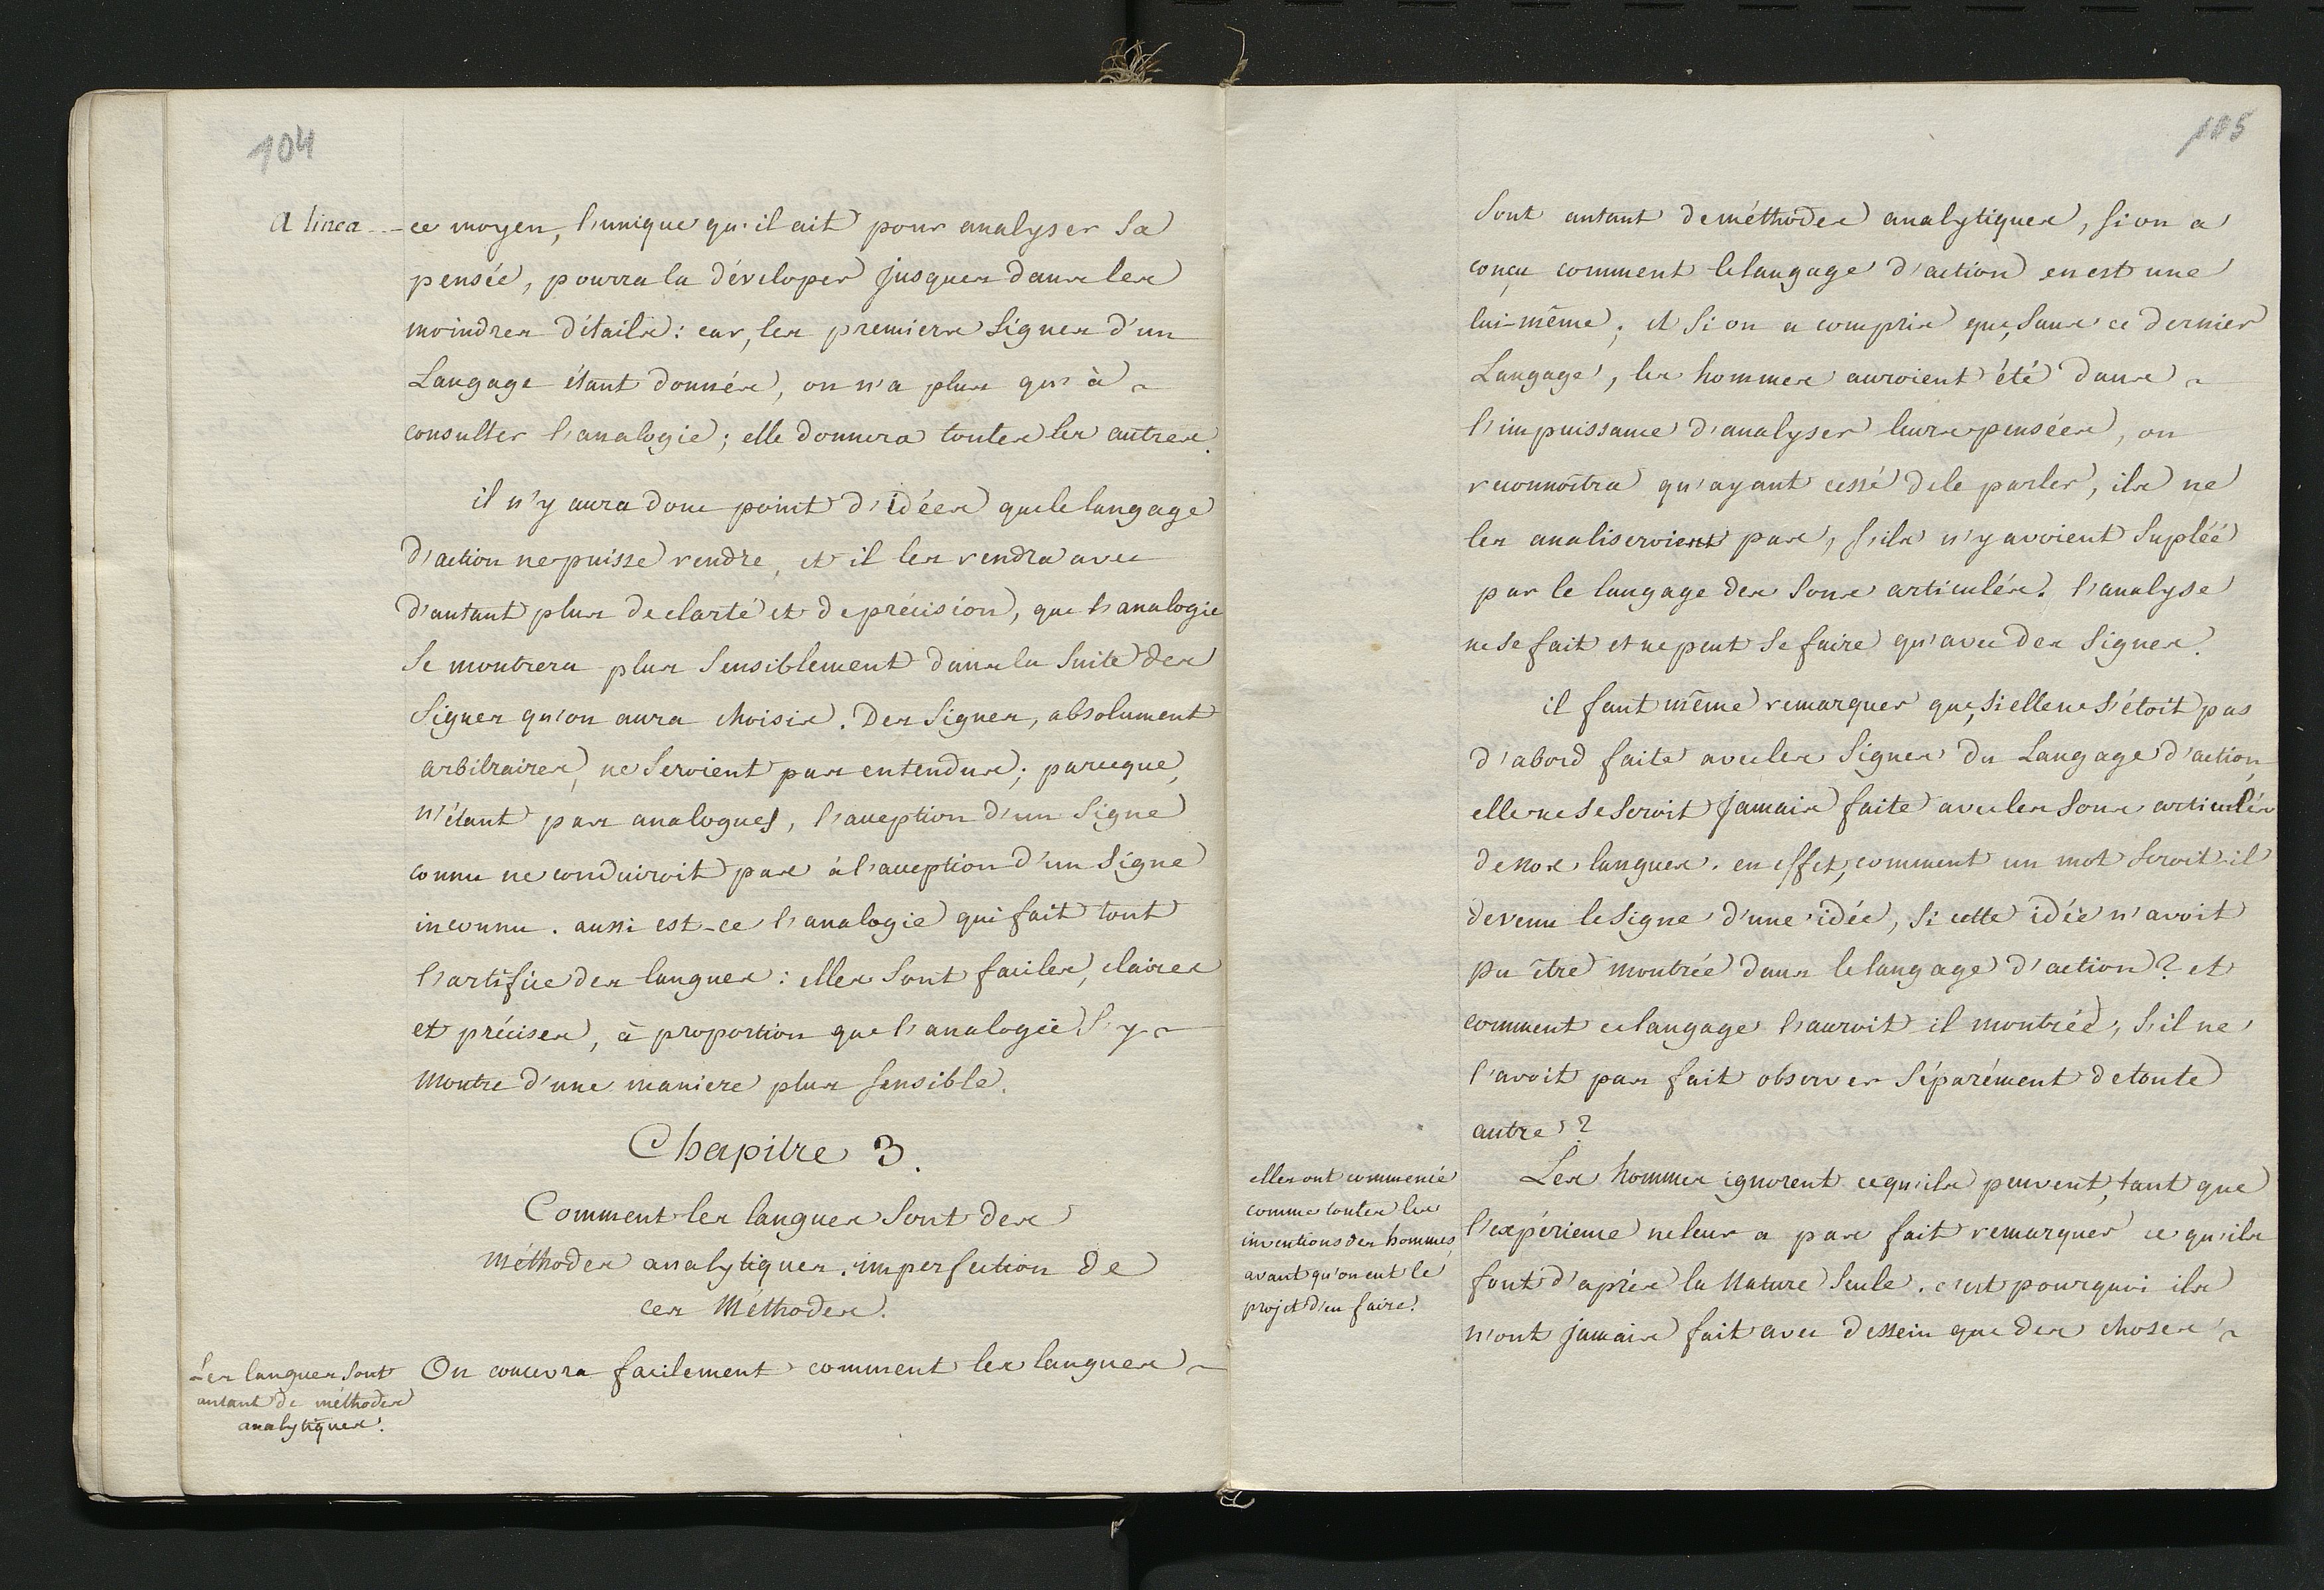 104
a linea --- ce moyen, l'unique qu'il ait pour analyser sa
pensée, pourra la déveloper jusques dans les
moindres détails: car, les premiers signes d'un
Langage étant donnés, on n'a plus qu'à
consulter l'analogie; elle donnera toutes les autres.
il n'y aura donc point d'idées que le langage
d'action ne puisse rendre, et il les rendra avec
d'autant plus de clarté et de précision, que l'analogie
se montrera plus sensiblement dans la suite des
signes qu'on aura choisis. Des signes, absolument
arbitraires, ne seroient pas entendus; parceque,
n'étant pas analogues, l'acception d'un signe
connu ne conduiroit pas à l'acception d'un signe
inconnu. aussi est-ce l'analogie qui fait tout
l'artifice des langues: elles sont faciles, claires
et précises, à proportion que l'analogie s'y
montre d'une maniere plus sensible.
Chapitre 3.
Comment les langues sont des
méthodes analytiques. imperfection de
ces Méthodes.
Les langues sont
autant de méthodes
analytiques.
On concevra facilement comment les langues
105
sont autant de méthodes analytiques, si on a
conçu comment le langage d'action en est une
lui-même; et si on a compris que, sans ce dernier
Langage, les hommes auroient été dans
l'impuissance d'analyser leurs pensées, on
reconnoîtra qu'ayant cessé de le parler, ils ne
les analiseroient pas, s'ils n'y avoient supléé
par le langage des sons articulés. l'analyse
ne se fait et ne peut se faire qu'avec des signes.
il faut même remarquer que, si elle ne s'étoit pas
d'abord faite avec les signes du Langage d'action,
elle ne se seroit jamais faite avec les sons articulés
de nos langues. en effet, comment un mot seroit-il
devenu le signe d'une idée, si cette idée n'avoit
pu être montrée dans le langage d'action? et
comment ce langage l'auroit il montrée, s'il ne
l'avoit pas fait observer séparément de toute
autre?
elles ont commencé
comme toutes les
inventions des hommes,
avant qu'on eut le
projet d'en faire.
Les hommes ignorent ce qu'ils peuvent, tant que
l'expérience ne leur a pas fait remarquer ce qu'ils
font d'après la Nature seule. c'est pourquoi ils
n'ont jamais fait avec dessein que des choses